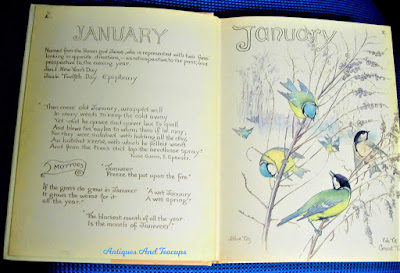 JANUARY
Named from the Roman god Janus, who is represented with two faces
looking in opposite directions, — as retrospective to the past, and
prospective to the coming year.
Jan 1 New Year's Day
Jan 6 Twelfth Day Epiphany
"Then came old January, wrapped well
In many weeds to keep the cold away
Yet did he quake and quiver like to quell
And blowe his nayles to warm them if he may;
For they were numbed with holding all the day
An hatchet keene, with which he felled wood
And from the trees did lop the needlesse spray"
Faerie Queene, E. Spenser.
Mottoes
"Janiveer
Freeze the pot upon the fire"
If the grass do grow in Janiveer
It grows the worse for it
all the year."
"A wet January
A wet Spring"
"The blackest month of all the year
Is the month of Janiveer"
Antiques And Teacups
January
Blue Tit
Cole Tit
Great Tit